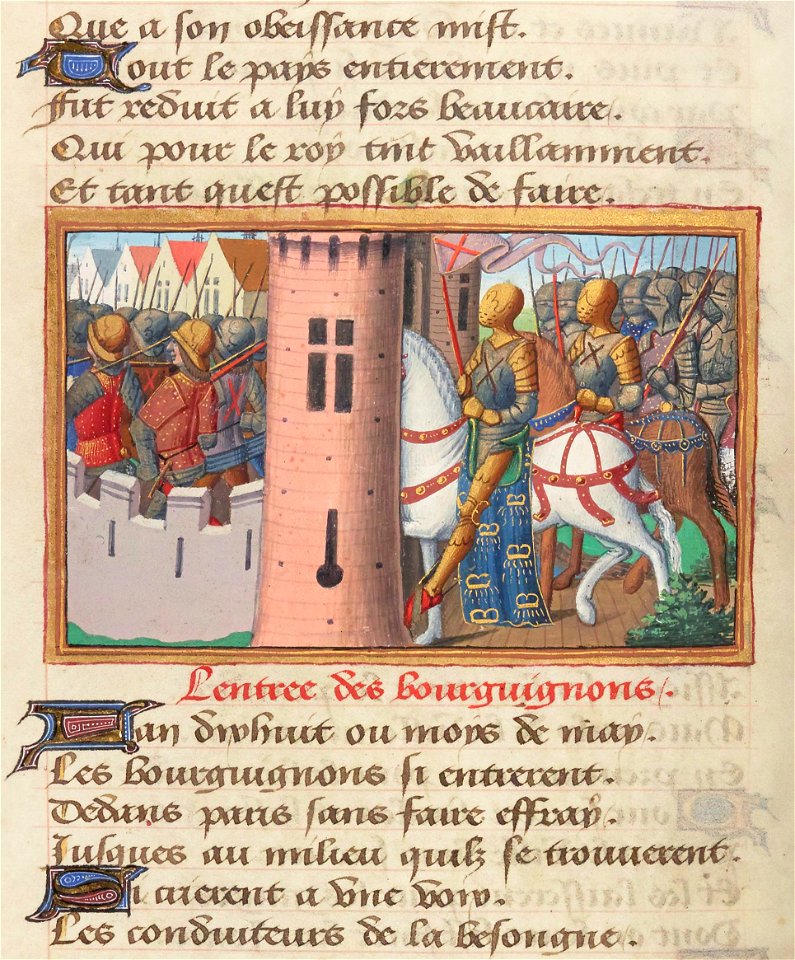 Que a son obeissance mist.
Tout le pays entierement.
Fut reduit a luy fors beaucaire.
Qui pour le roy tint vaillamment.
Et tant quest possible de faire.
Lentree des bourguignons.
Lan dixhuit ou moys de may.
Les bourguignons si entrerent.
Dedans paris sans faire effray.
Jusques au milieu quilz se trouverent.
Si crierent a une voix.
Les conduiteurs de la besongne.